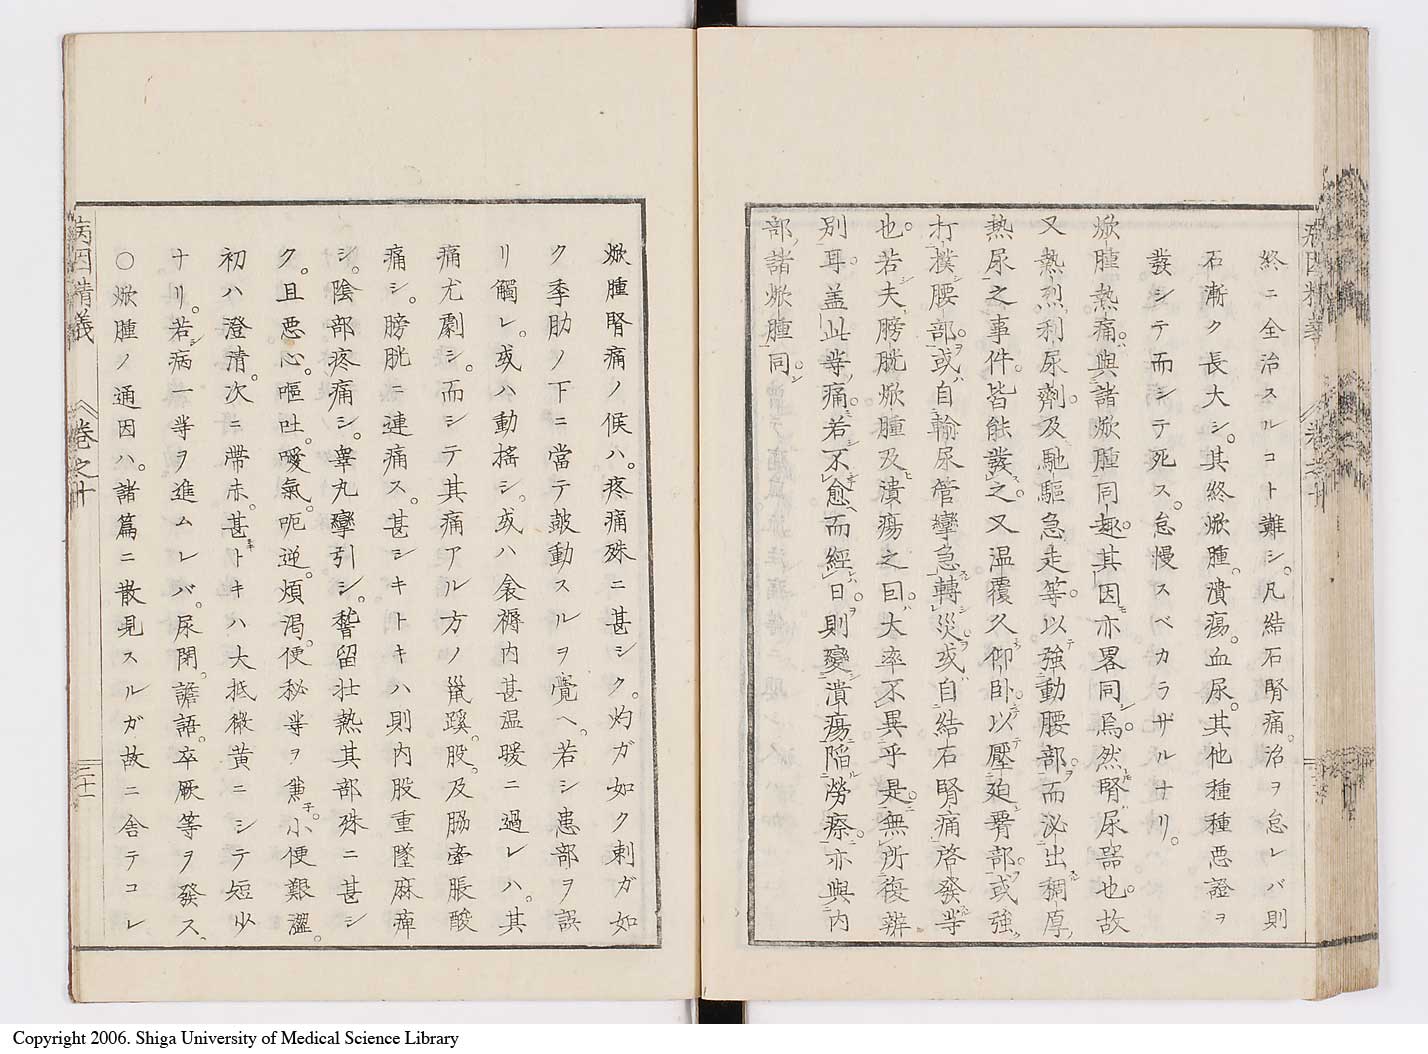 終ニ全治スルコト難シ。凡結石腎痛。治ヲ怠レバ則
石漸ク長大シ。其終焮腫。潰瘍。血尿。其他種種悪證ヲ
發シテ而シテ死ス。怠慢スベカラザルナリ。
焮腫熱痛。與諸焮腫同趣。其因亦畧同焉。然腎尿器也。故
又熱烈利尿劑。及馳驅急走等。以強動腰部。而泌出稠厚
熱尿之事件。皆能發之。又温覆久仰臥。以壓迫腎部。或強
打撲腰部。或自輸尿管攣急轉災。或自結石腎痛啓發等
也。若夫膀胱焮腫及潰瘍之因。大率不異乎是。無所復辨
別耳。盖此等痛。若不愈而經日。則變潰瘍。陥勞瘵。亦與内
部諸焮腫同。
焮腫腎痛ノ候ハ。疼痛殊ニ甚シク。灼ガ如ク刺ガ如
ク季肋ノ下ニ當テ鼓動スルヲ覺ヘ。若シ患部ヲ誤
リ觸レ。或ハ動搖シ。或ハ衾褥内甚温暖ニ過レハ。其
痛尤劇シ。而シテ其痛アル方ノ鼠蹊。股。及腸牽脹酸
痛シ。膀胱ニ連痛ス。甚シキトキハ則内股重墜麻痺
シ。陰部疼痛シ。睾丸攣引シ。稽留壮熱其部殊ニ甚シ
ク。且悪心。嘔吐。噯氣。呃逆。煩渇。便秘等ヲ兼。小便艱澀。
初ハ澄清。次ニ帯赤。甚トキハ大抵微黄ニシテ短少
ナリ。若病一等ヲ進ムレバ。尿閉。譫語。卒厥等ヲ發ス、
〇焮腫ノ通因ハ。諸篇ニ散見スルガ故ニ舎テコレ
病因精義
卷之十
二十一